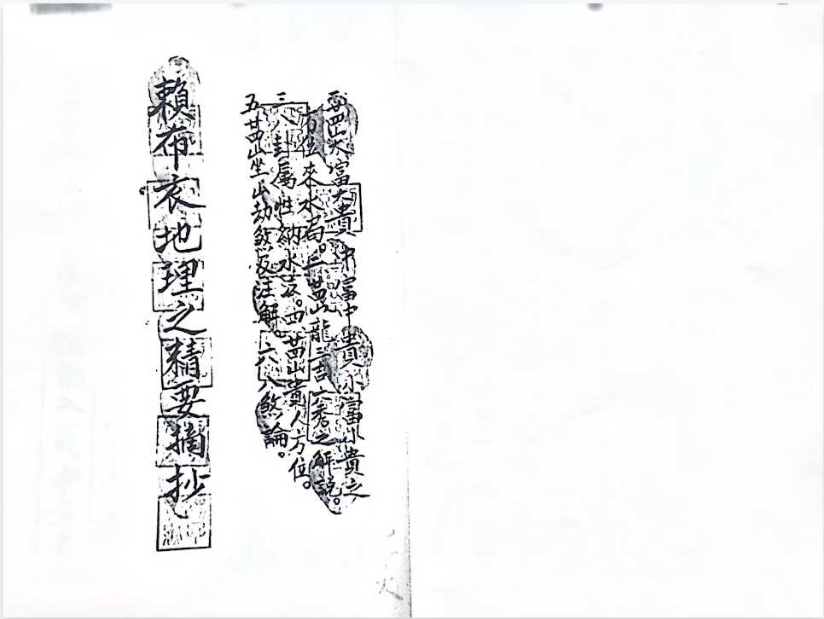 一廿四山大富大貴中富中貴小富小貴之
方位來水局。二廿四山龍三吉六秀之解說。
三八卦属性納水法。四廿四山貴人方位。
五廿四山坐山劫煞及注解。六八煞論。
賴布衣地理之精要摘抄